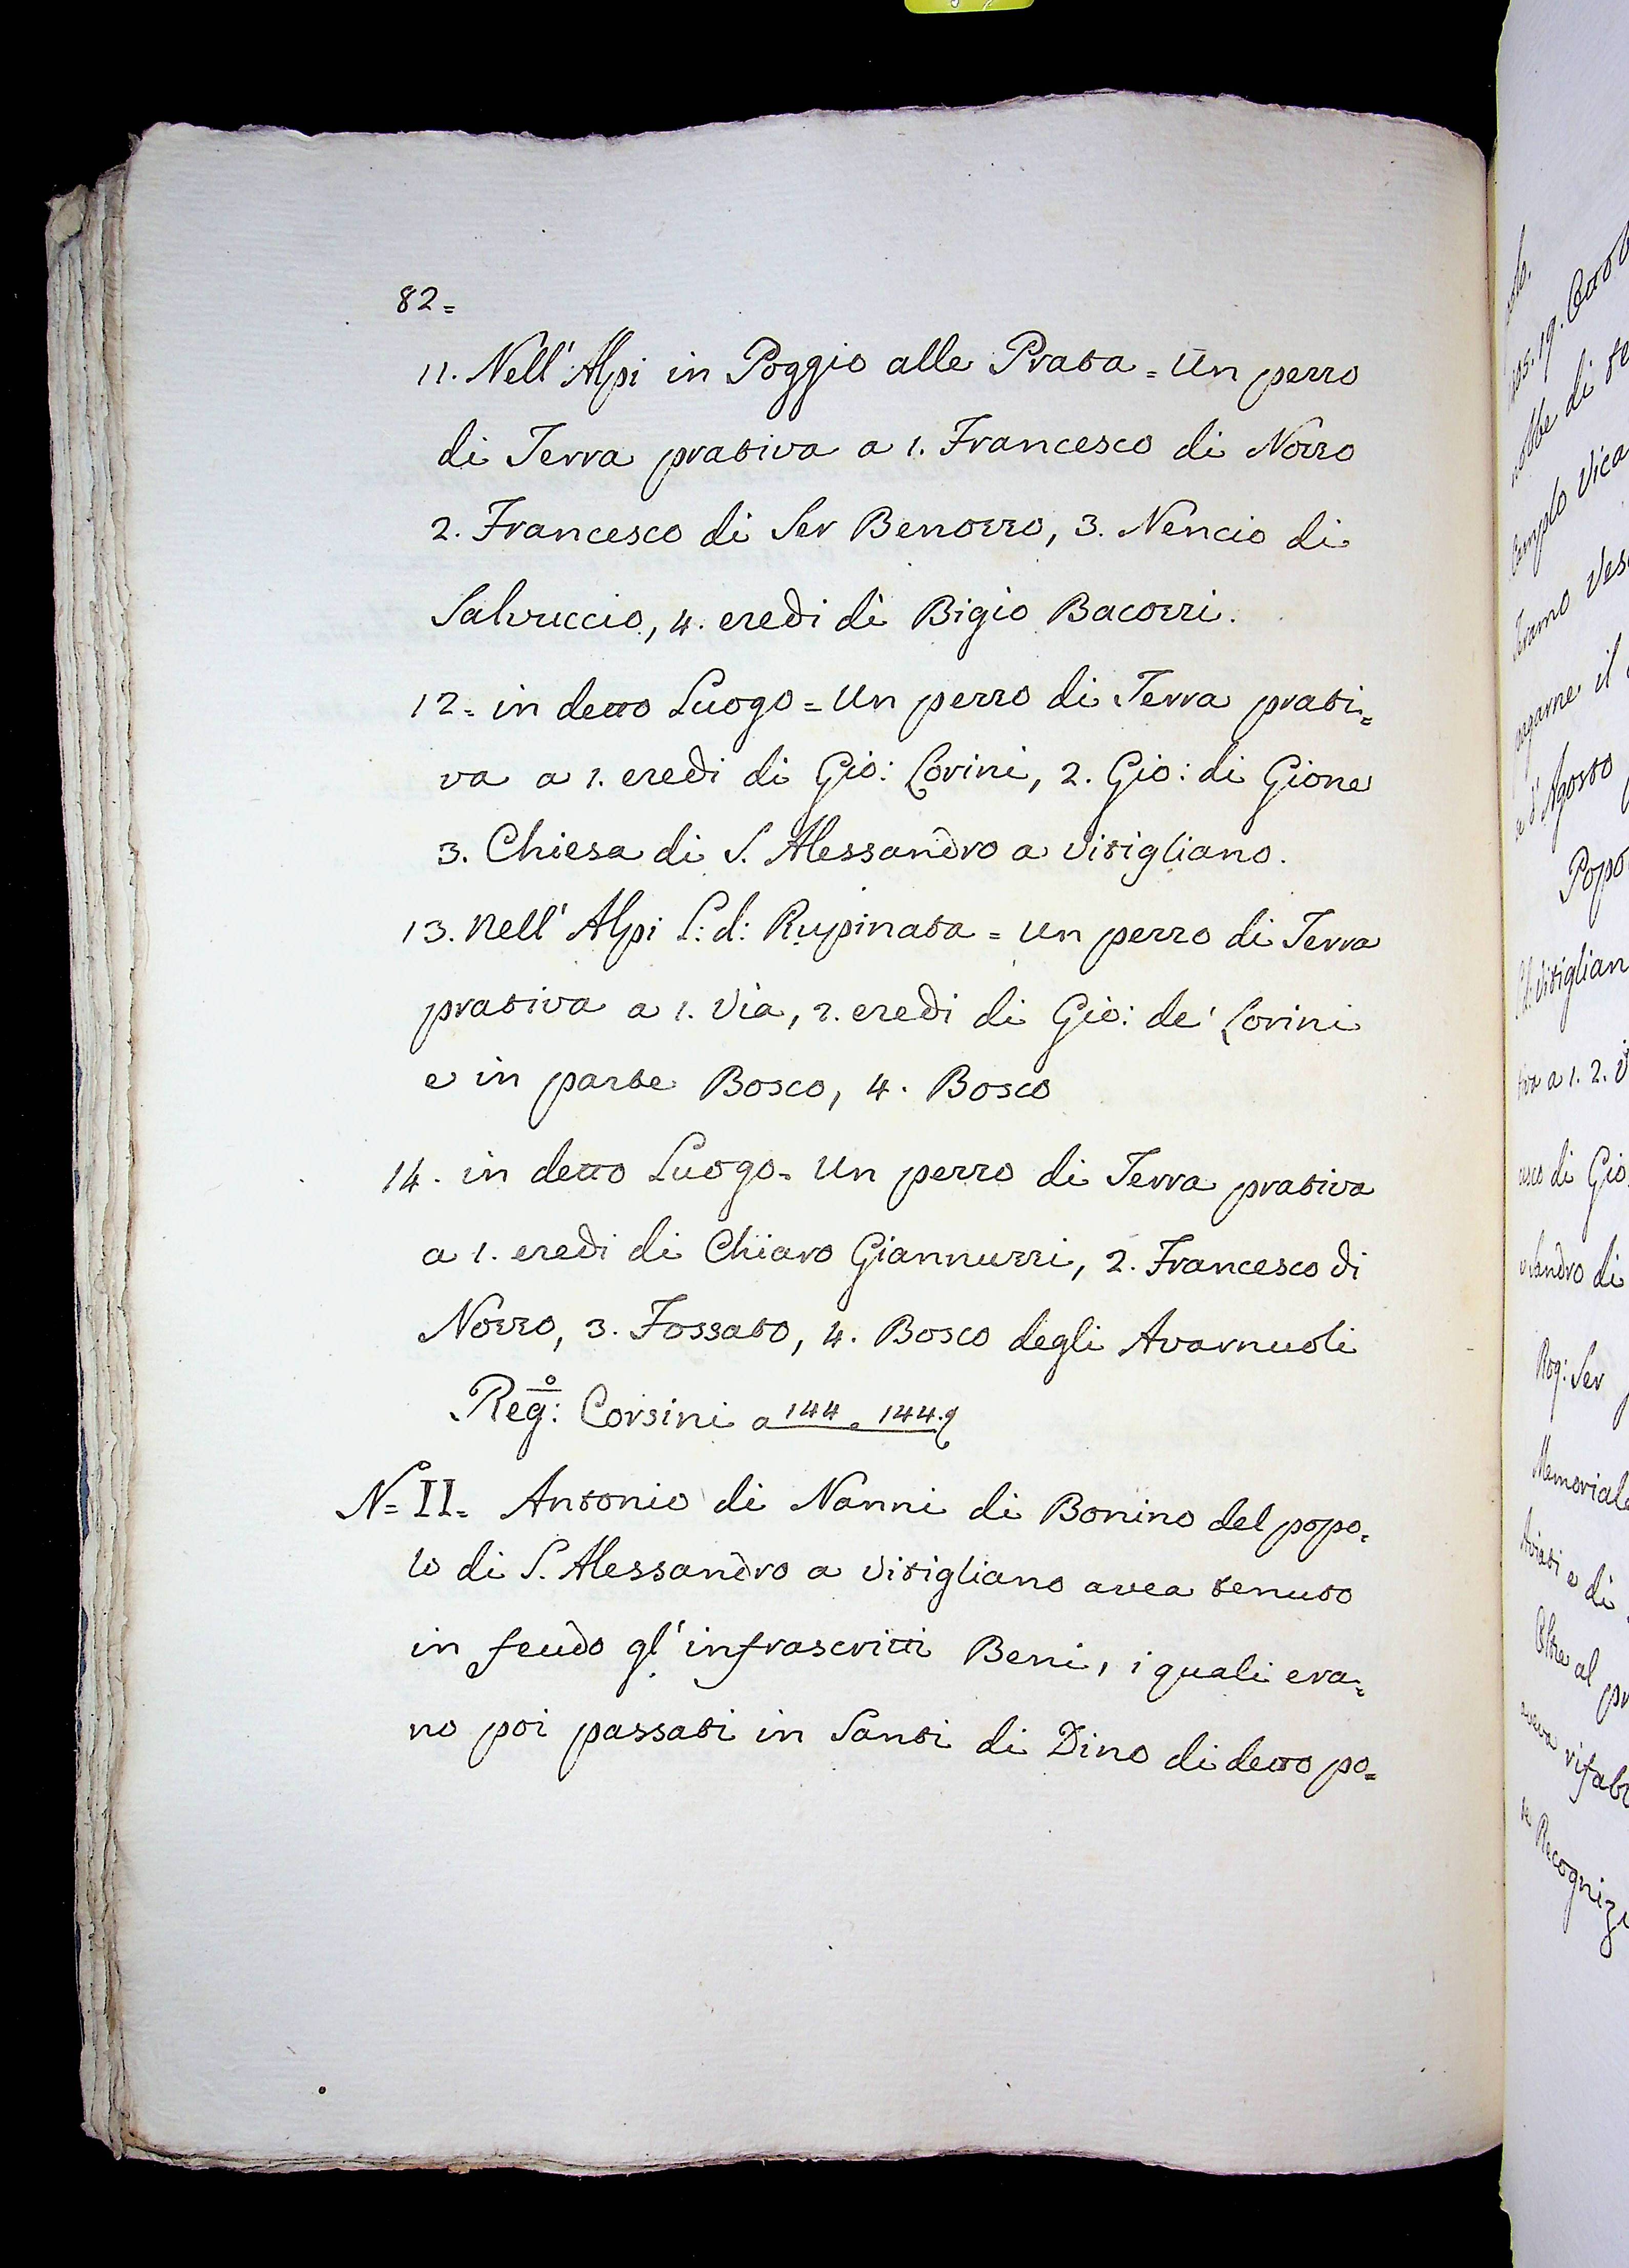 82=
11. Nell' Alpi in Poggio alle Prata = Un pezzo
di Terra prativa a 1. Francesco di Nozzo
2. Francesco di Ser Benozzo, 3. Nencio di
Salvuccio, 4. eredi di Bigio Bacozzi.
12= in detto Luogo = Un pezzo di Terra prati=
va a 1. eredi di Gio: Corini, 2. Gio: di Gione
3. Chiesa di S. Alessandro a Vitigliano.
13. Nell' Alpi L: d: Rupinata = Un pezzo di Terra
prativa a 1. Via, 2. eredi di Gio: de' Corini
e in parte Bosco, 4. Bosco
14. in detto Luogo= Un pezzo di Terra prativa
a 1. eredi di Chiaro Giannuzzi, 2. Francesco di
Nozzo, 3. Fossato, 4. Bosco degli Avarnuoli
Reg:º Corsini a 144 = 144.
Nº= II= Antonio di Nanni di Bonino del popo=
lo di S. Alessandro a Vitigliano avea tenuto
in feudo gl' infrascritti Beni, i quali era=
no poi passati in Santi di Dino di detto po=